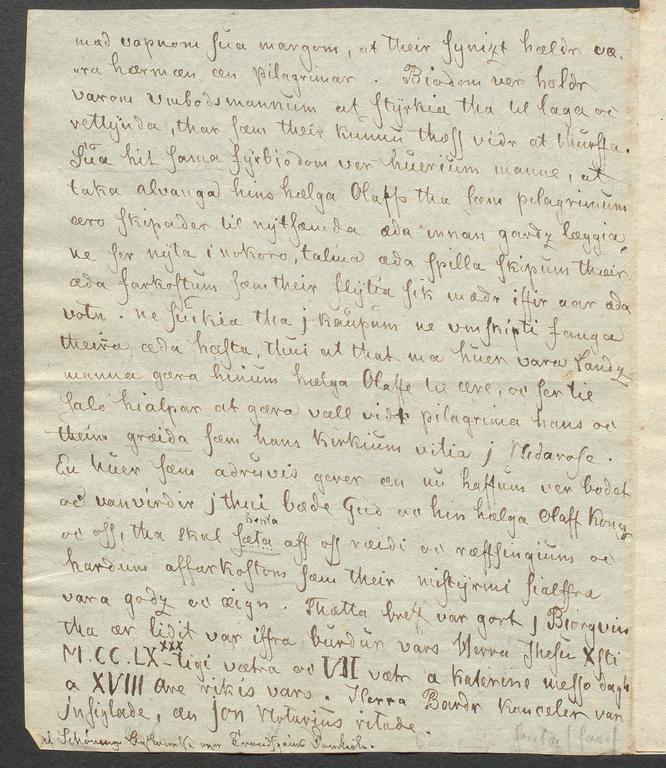 mæd vapnom sua margom, at their synizt hældr væ-
ra hærmæn æn pilagrimar. Biodom ver hældr
varom umbodsmannum at styrkia tha til laga oc
rettynda, thar sæm their kunnu thæss vidr at thurffa.
Sua hit sama fyrbiodom ver huerium manne, at
taka alvanga hins hælga Olaffs tha sæm pilagrimum
æro skipader til nytsæmda æda innan gardz læggia,
ne ser nyta i nokoro, talma æda spilla skipum theira
æda farkostum sæm their flytia sik mædr iffir aar æda
votn. ne suikia tha j kaupum ne umskipti fanga
theira æda hæsta, thui at that ma huer vara Landz
manna gæra hinum hælga Olaffe til ære, oc ser til
salo hialpar at gæra væll vidr pilagrima hans oc
theim græida sæm hans kirkium vitia j Nidarose.
En huer sæm adruvis gerer æn nu haffum ver bodet
oc vanvirdir j thui bæde Gud oc hin hælga Olaff Kong
oc oss, tha skal sæta aff oss ræidi oc ræffsingium oc
henta
hardum affarkostom sæm their mistyrmi sialffra
vara godz oc æign. Thætta breff var gort j Biorgvin
tha ær lidit var iffra burdur vars Herra Jhesu Xsti
M.CC.LXXXX-tigi vætra oc VII vætr a Katerine messo dagh
a XVIII are rikis vars. Herra Bardr kanceler var
insiglade, æn Jon Notarius ritade.
af Schöning Beskrivelse over Trondhjems Domkirke.